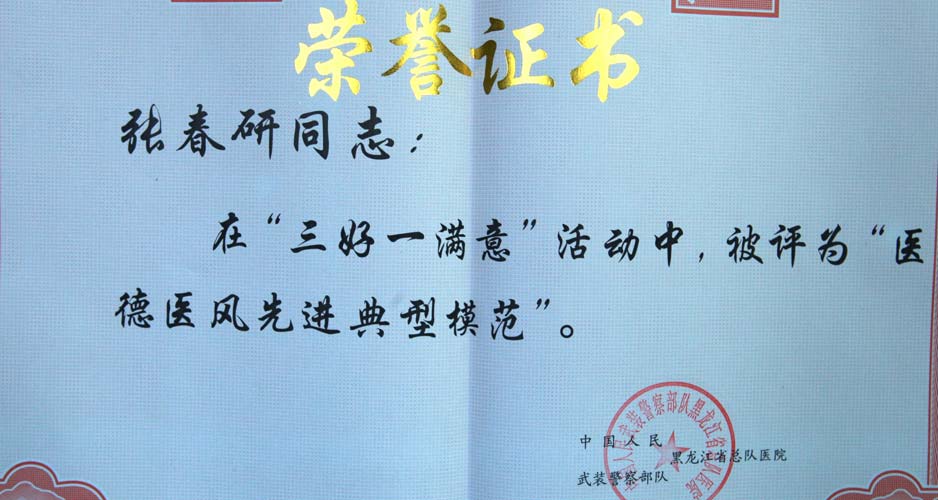 荣誉证书
张春研同志：
在“三好一满意”活动中，被评为“医
德医风先进典型模范”。
中国人民
武装警察部队
黑龙江省总队医院
中国人民武装警察部队黑龙江省总队医院